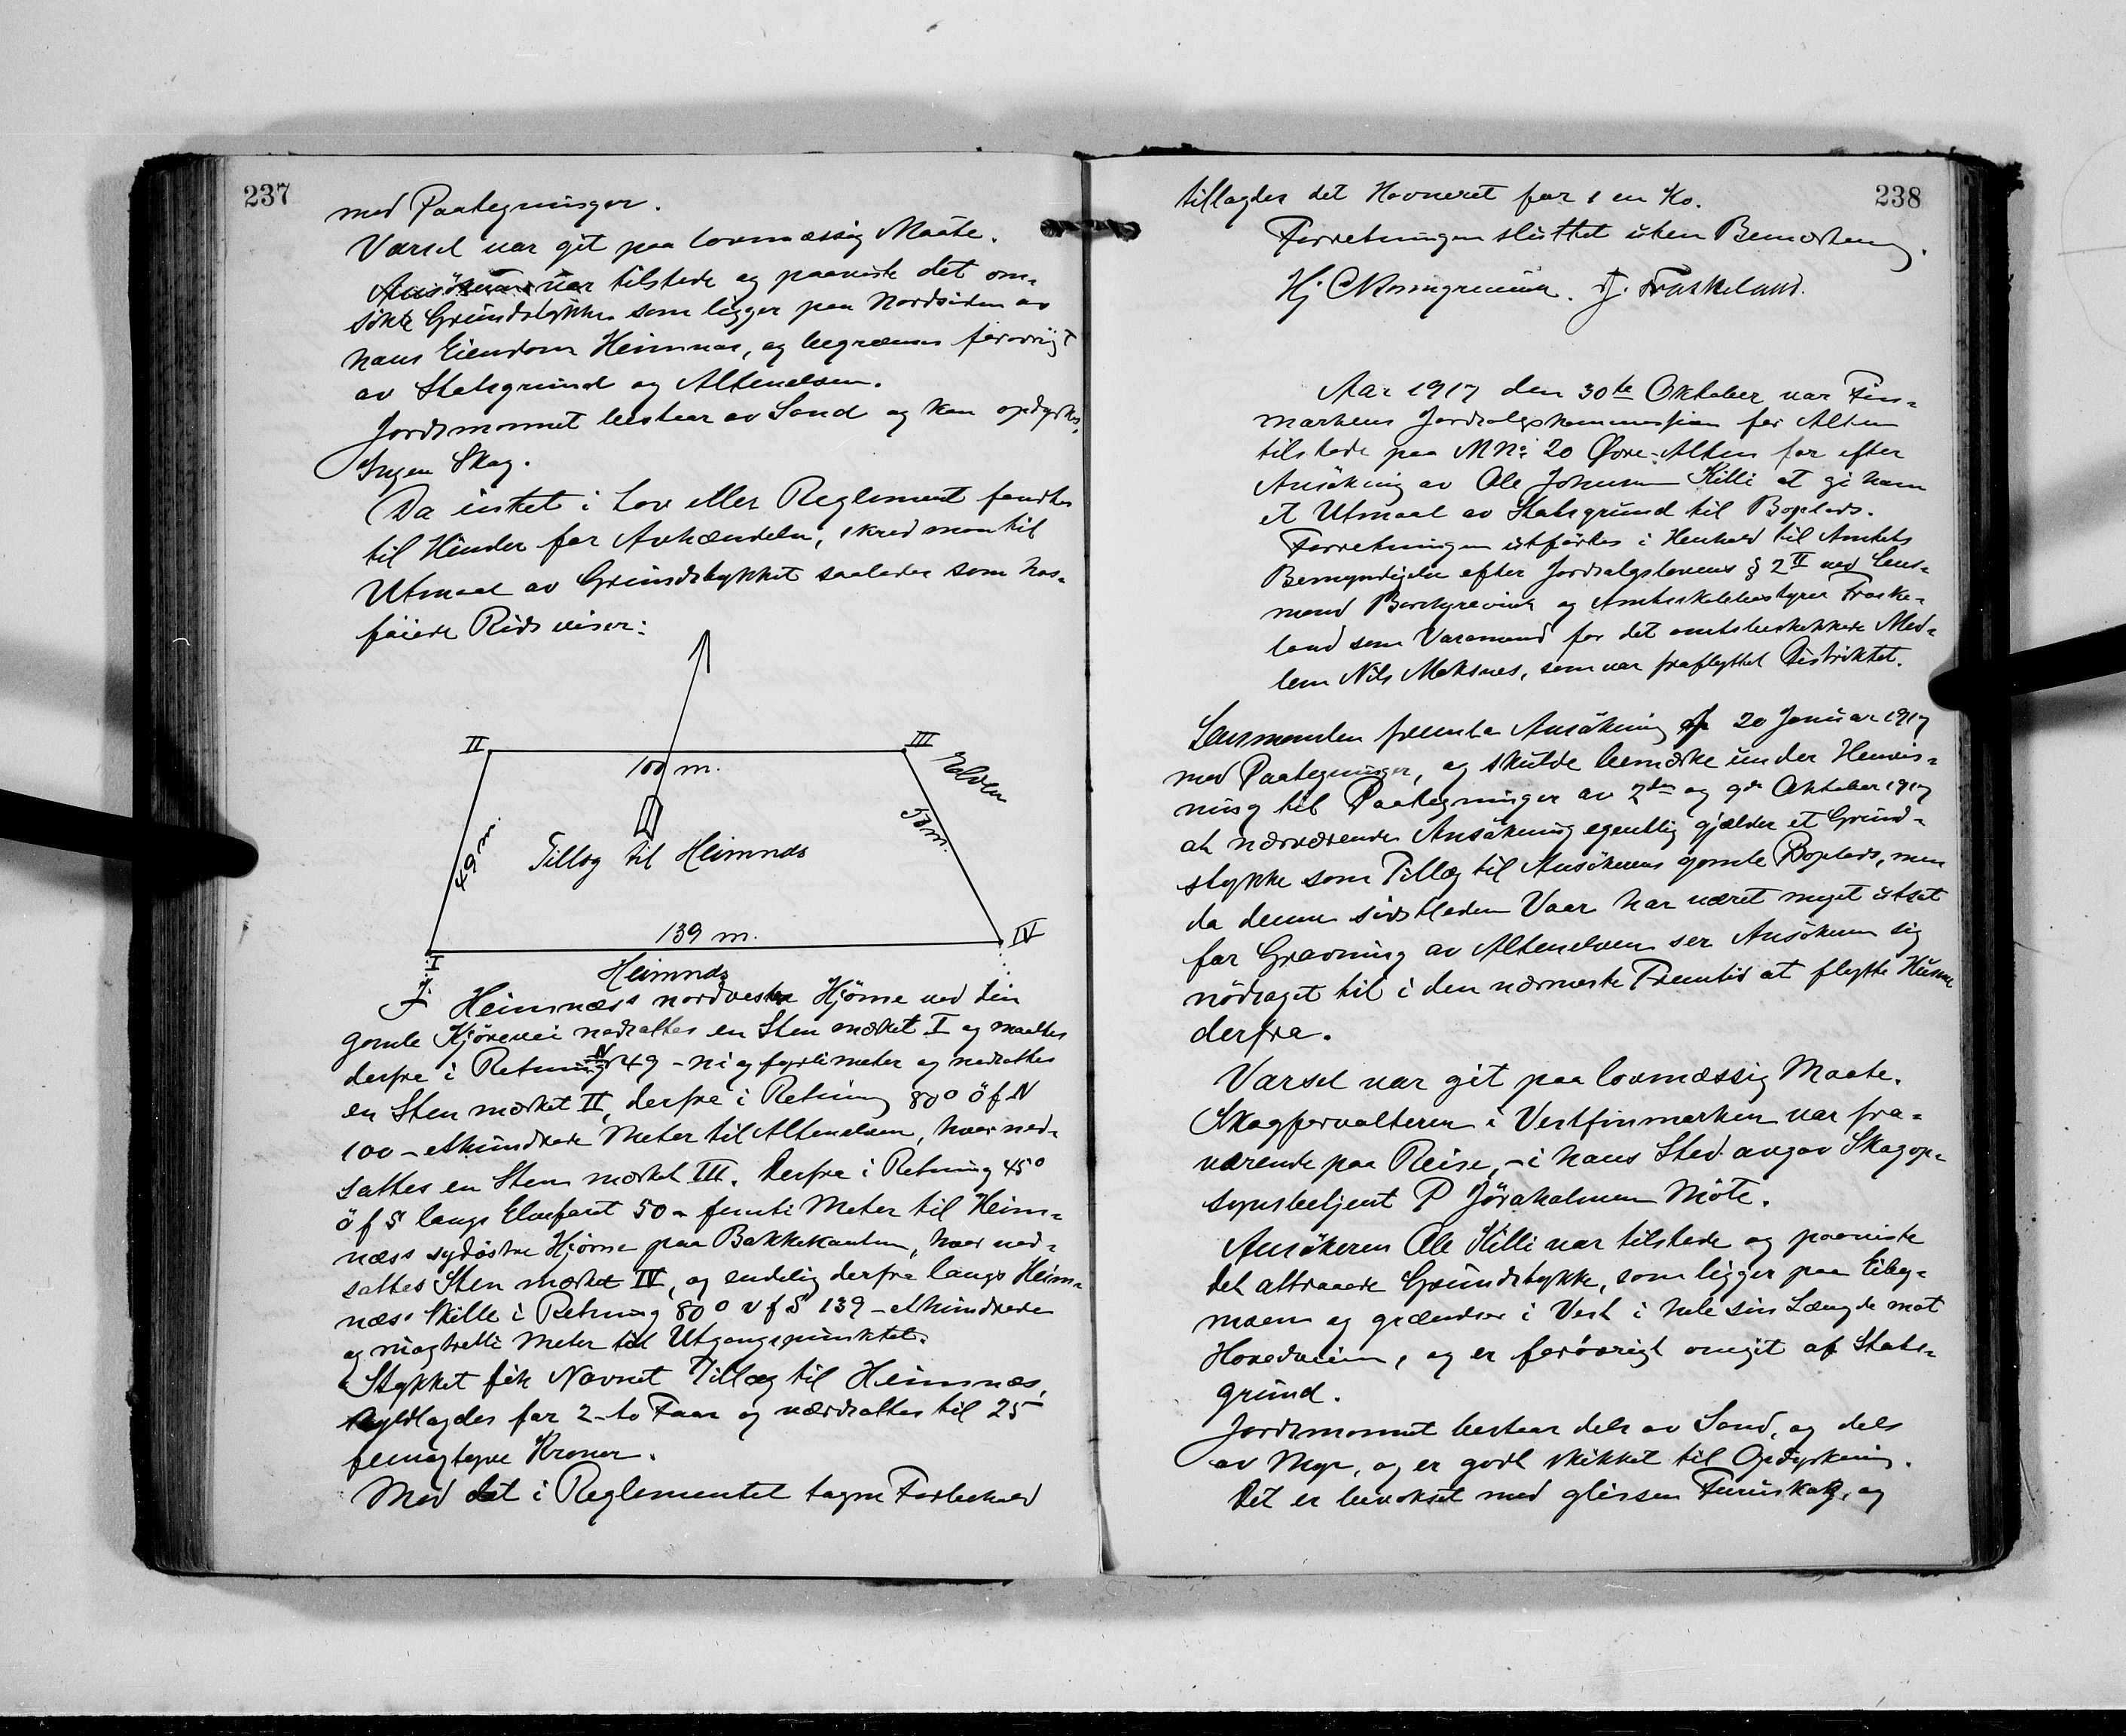 237
med Paategninger.
Varsel var git paa lovmæssig Maate.
Ansökeren var tilstede og paaviste det om-
søkte Grundstykke som ligger paa Nordsiden av
hans Eiendom Heimnæs, og begrænses forövrigt
av Statsgrund og Altenelven.
Jordsmonnet bestaar av Sand og kan opdyrkes.
Ingen Skog.
Da intet i Lov eller Reglement fandtes
til Hinder for Avhændelse, skred man til
Utmaal av Grundstykket saaledes som hos-
föiede Rids viser:
II
III
100 m.
Elven
49 m.
50 m.
Tillæg til Heimnæs
139 m.
I
IV
Heimnæs
I Heimnæs's nordvestre Hjörne ved den
gamle Kjörevei nedsattes en Sten mærket I og maaltes
derfra i Retning N 49 - ni og førti meter og nedsattes
en Sten mærket II, derfra i Retning 80° ö f N
100 - ethundrede Meter til Altenelven, hvor ned-
sattes en Sten mærket III. Derfra i Retning 45°
ö f S langs Elvefaret 50 - femti Meter til Heim-
næs's sydöstre Hjörne paa Bakkekanten, hvor ned-
sattes Sten mærket IV, og endelig derfra langs Heim-
næs' Skille i Retning 80° v f S 139 - ethundrede
og niogtretti Meter til Utgangspunktet.
Stykket fik Navnet Tillæg til Heimnæs,
skyldlagdes for 2 - to Faar og værdsattes til 25
femogtyve Kroner.
Med det i Reglementet tagne Forbehold
238
tillagdes det Havneret for 1 en Ko.
Forretningen sluttet uten Bemærkning.
Hj. C. Borchgrevink. J. Fraskeland.
Aar 1917 den 30te Oktober var Fin-
markens Jordsalgskommission for Alten
tilstede paa M No: 20 Øvre-Alten for efter
Ansökning av Ole Johnsen Killi at gi ham
et Utmaal av Statsgrund til Boplads.
Forretningen utførtes i Henhold til Amtets
Bemyndigelse efter Jordsalgslovens § 2 II ved Lens-
mand Borchgrevink og Amtsskolebestyrer Fraske-
land som Varamand for det amtsbeskikkede Med-
lem Nils Moksnes, som var fraflyttet Distriktet.
Lensmanden fremla Ansökning af 20 Januar 1917
med Paategninger, og skulde bemærke under Henvis-
ning til Paategninger av 2den og 9de Oktober 1917
at nærværende Ansökning egentlig gjælder et Grund-
stykke som Tillæg til Ansökerens gamle Boplads, men
da denne sidstleden Vaar har været meget utsat
for Gravning av Altenelven ser Ansökeren sig
nödsaget til i den nærmeste Fremtid at flytte Husene
derfra.
Varsel var git paa lovmæssig Maate.
Skogforvalteren i Vestfinmarken var fra-
værende paa Reise, - i hans Sted avgav Skogop-
synsbetjent P Jöraholmen Möte.
Ansökeren Ole Killi var tilstede og paaviste
det attraaede Grundstykke, som ligger paa Eiby-
moen og grændser i Vest i hele sin Længde mot
Hovedveien, og er forövrigt omgit af Stats-
grund.
Jordsmonnet bestaar dels av Sand, og dels
av Myr, og er godt skikket til Opdyrkning.
Det er bevokset med glissen Furuskog, og